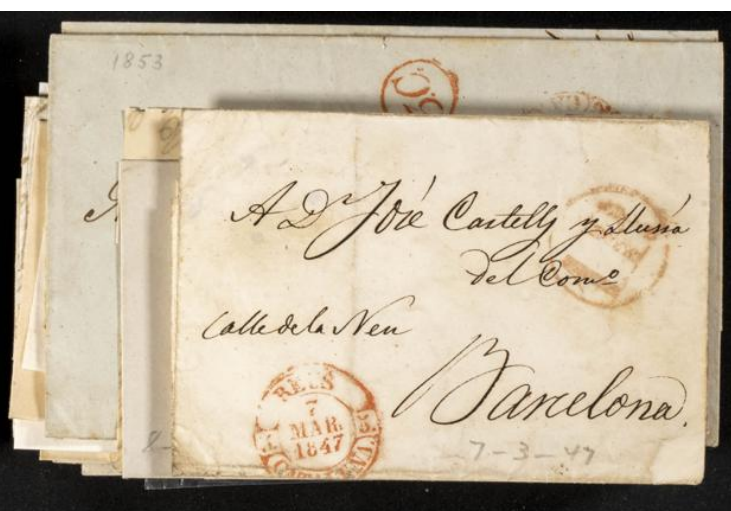 1853
A Dn José Castells y Llusiá
del Como
Calle de la Neu
Barcelona.
REUS
7
MAR.
1847
7-3-47